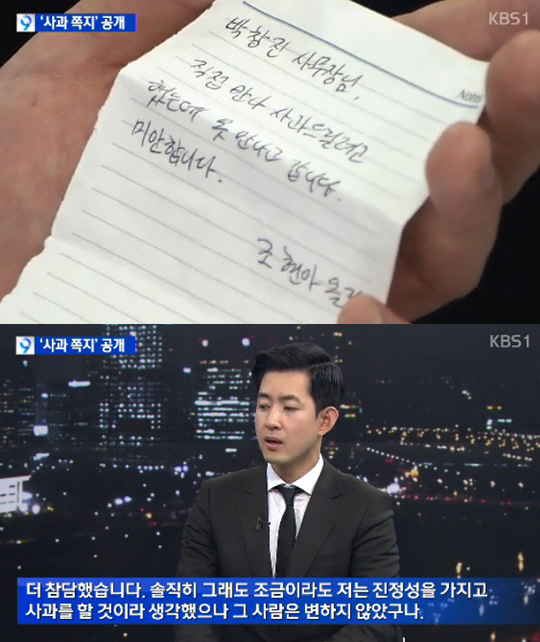 9 '사과 쪽지' 공개
KBS1
Note
박창진 사무장님,
직접 만나 사과드릴려고
했는데 못 만나고 갑니다.
미안합니다.
조현아 올림
9 '사과 쪽지' 공개
KBS1
더 참담했습니다. 솔직히 그래도 조금이라도 저는 진정성을 가지고
사과를 할 것이라 생각했으나 그 사람은 변하지 않았구나.